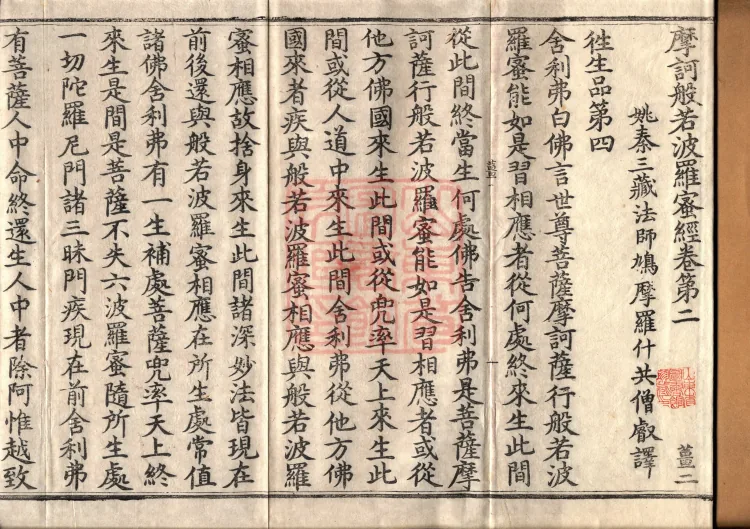 摩訶般若波羅蜜經卷第二
薑二
姚秦三藏法師鳩摩羅什共僧叡譯
徃生品第四
舍利弗白佛言世尊菩薩摩訶薩行般若波
羅蜜能如是習相應者從何處終來生此間
從此間終當生何處佛告舍利弗是菩薩摩
訶薩行般若波羅蜜能如是習相應者或從
他方佛國來生此間或從兜率天上來生此
間或從人道中來生此間舍利弗從他方佛
國來者疾與般若波羅蜜相應與般若波羅
蜜相應故捨身來生此間諸深妙法皆現在
前後還與般若波羅蜜相應在所生處常值
諸佛舍利弗有一生補處菩薩兜率天上終
來生是間是菩薩不失六波羅蜜隨所生處
一切陀羅尼門諸三昧門疾現在前舍利弗
有菩薩人中命終還生人中者除阿惟越致